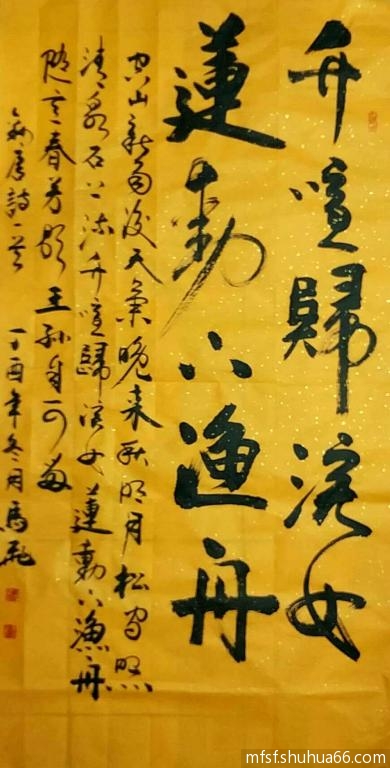 竹喧歸浣女
蓮動下漁舟
空山新雨後天氣晚來秋明月松间照
清泉石上流竹喧歸浣女蓮動下漁舟
随意春芳歇王孫自可留
錄唐詩一首 丁酉年冬月馬飛
mfsfshuhua66.com